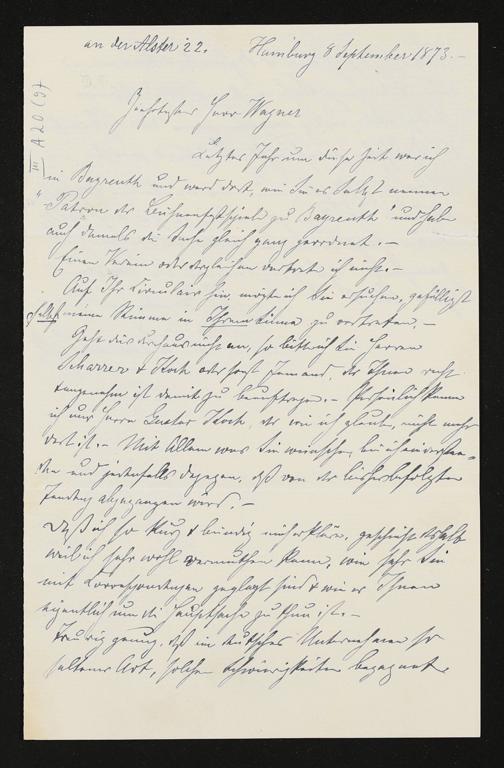 an der Alster 22. Hamburg 8 September 1873.-
III A 20 (9)
Geehrtester Herr Wagner
Letztes Jahr um diese Zeit war ich
in Bayreuth und ward dort, wie Sie es selbst nennen
"Patron der Bühnenfestspiele zu Bayreuth" und habe
auch damals die Sache gleich ganz geordnet.-
Einen Verein oder dergleichen vertrete ich nicht.-
Auf Ihr Circulair hin, möchte ich Sie ersuchen, gefälligst
selbst meine Stimme in Ihrem Sinne zu vertreten.-
Geht dies durchaus nicht an, so bitte ich Sie Herren
Scharrer & Koch oder sonst jemand, der Ihnen recht
angenehm ist damit zu beauftragen.- Persönlich kenne
ich nur Herrn Gustav Koch, der wie ich glaube, nicht mehr
dort ist.- Mit Allem was Sie wünschen, bin ich einverstan-
den und jedenfalls dagegen, daß von der bisher befolgten
Tendenz abgegangen wird.-
Daß ich so kurz & bündig mich erkläre, geschieht deshalb
weil ich sehr wohl vermuthen kann, wie sehr Sie
mit Correspondenzen geplagt sind & wie es Ihnen
eigentlich um die Hauptsache zu thun ist.-
Traurig genug, daß ein deutsches Unternehmen so
seltener Art, solchen Schwierigkeiten begegnet.